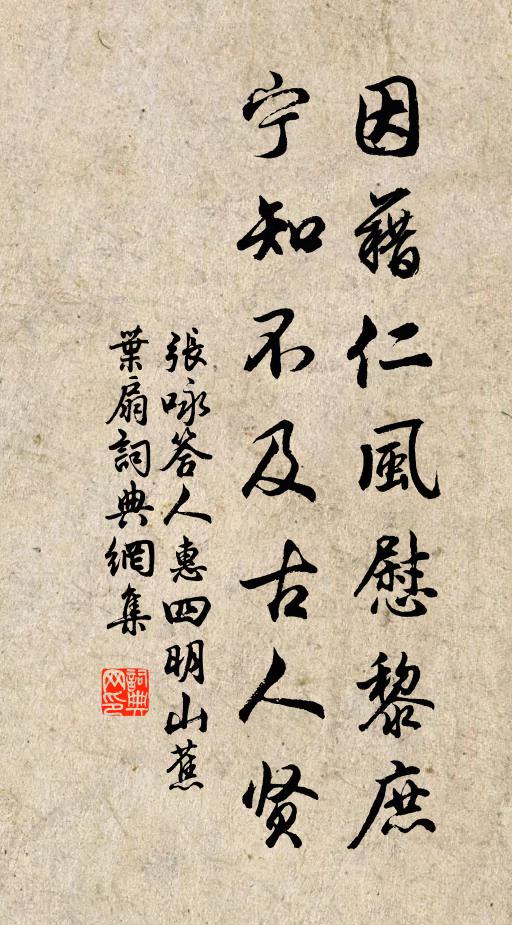 因藉仁風慰黎庶
宁知不及古人贤
張咏答人惠四明山蕉
葉扇詞典網集
詞典
网印